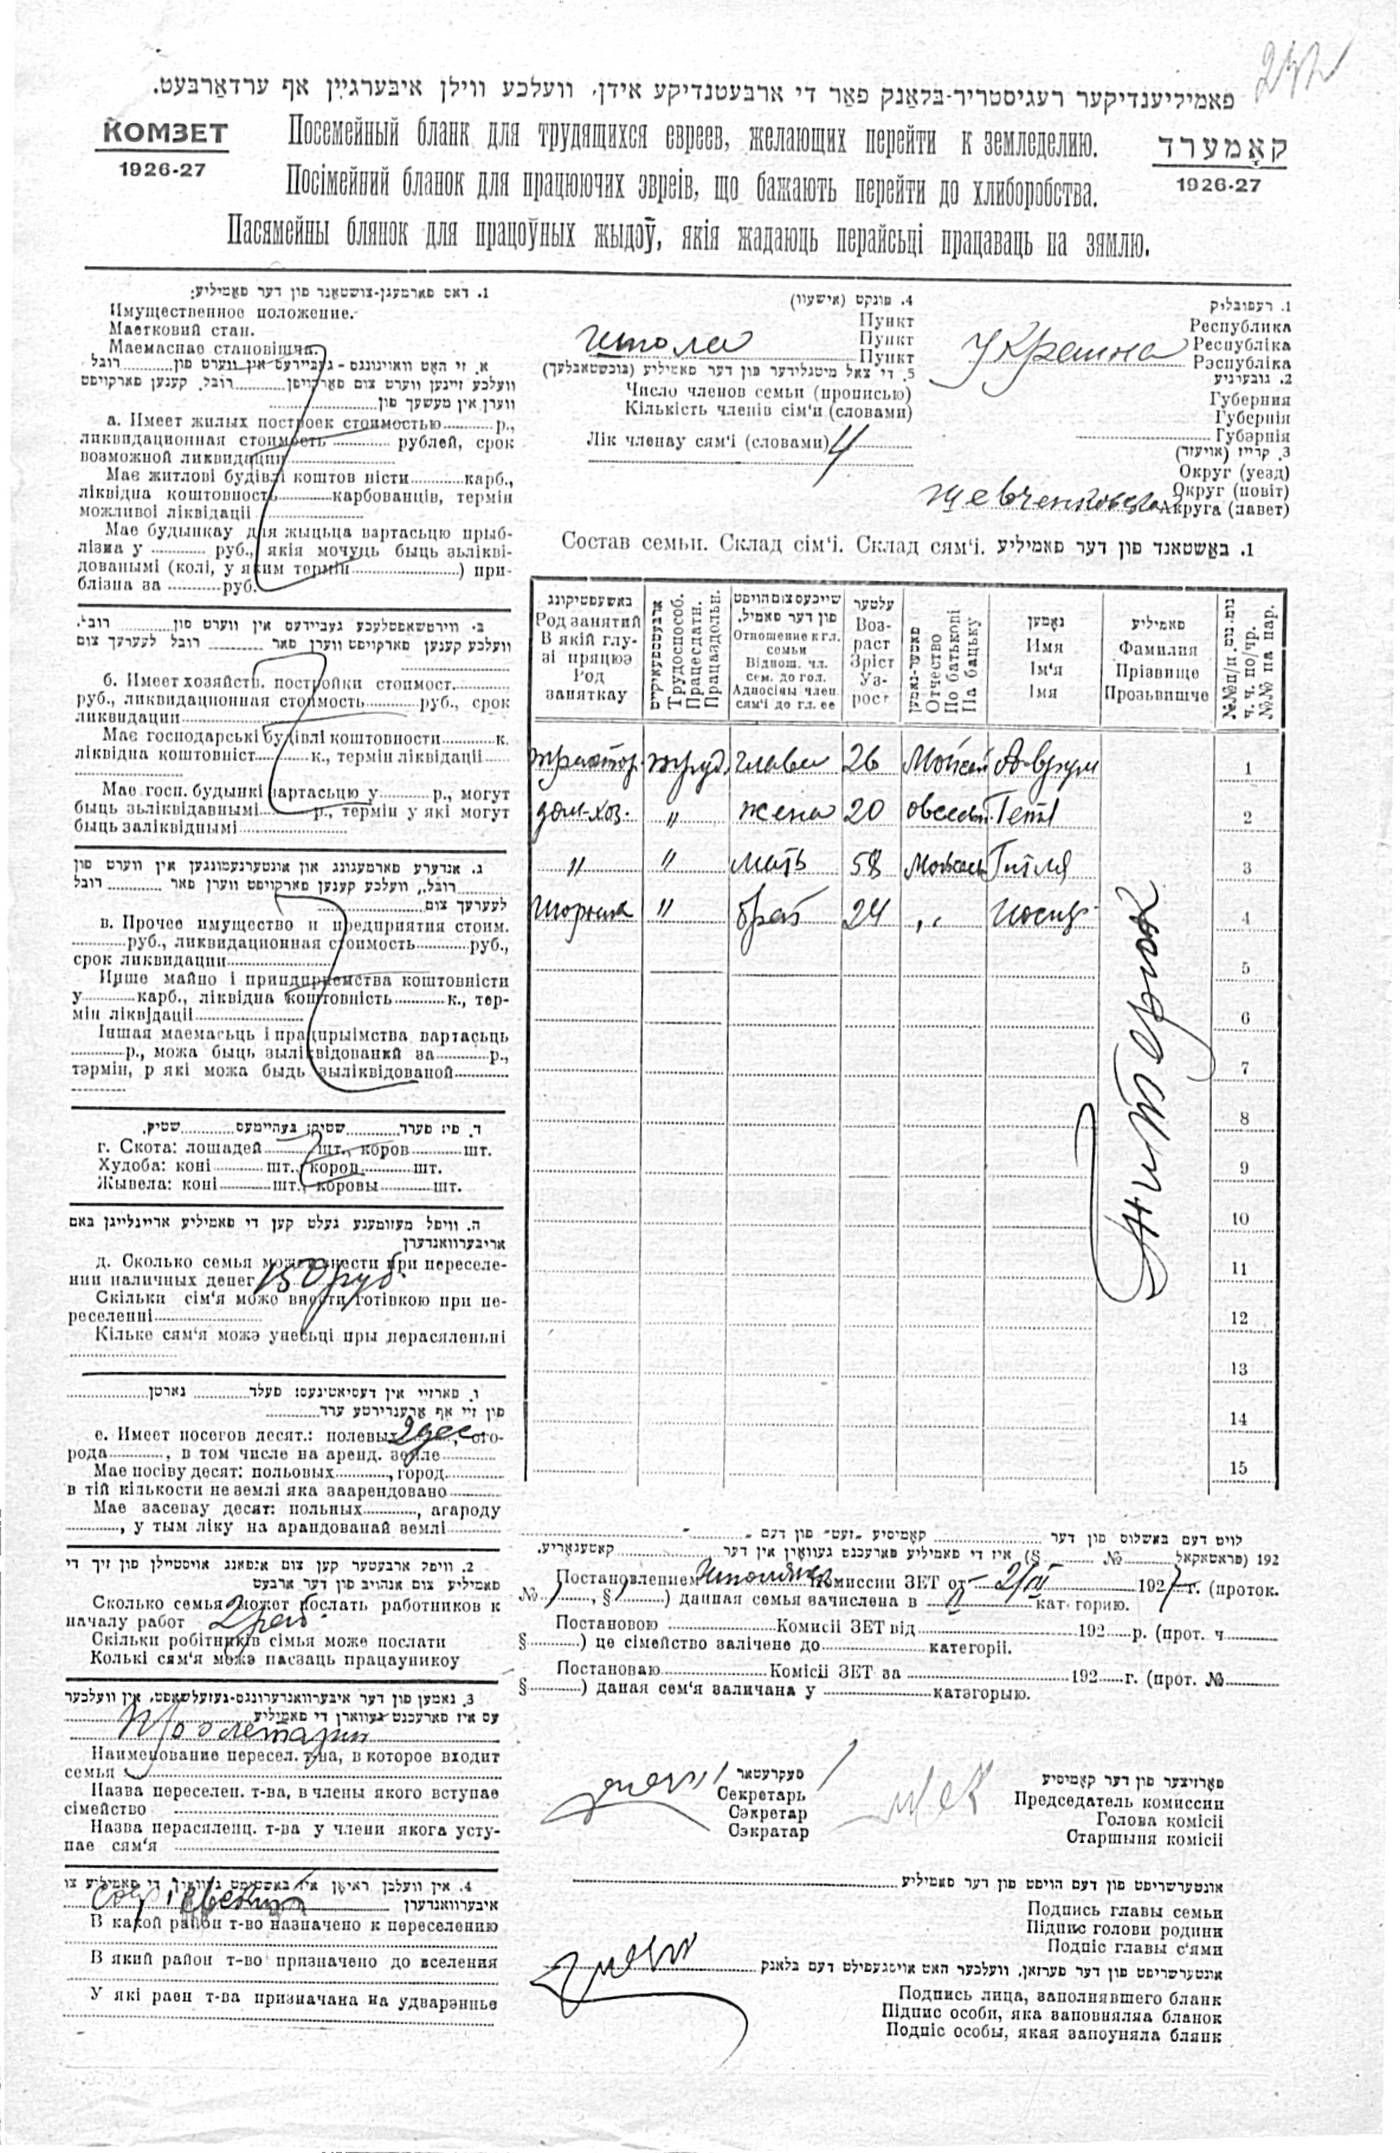 פאמיליענדיקער רעגיסטריר-בלאַנק פאַר די ארבעטנדיקע אידן, וועלכע ווילן איבערגיין אף ערדאַרבעט.
КОМЗЕТ
1926-27
Посемейный бланк для трудящихся евреев, желающих перейти к земледелию.
Посімейний бланок для працюючих эвреів, що бажають перейти до хлиборобства.
Пасямейны блянок для працоўных жыдоў, якія жадаюць перайсьці працаваць на зямлю.
קאָמערד
1926-27
1. רעפובליק
Республика
Республіка
Рэспубліка
Украина
2. גובערניע
Губерния
Губернія
Губэрнія
3. קרייז (אויעזד)
Округ (уезд)
Округ (повіт)
Акруга (павет)
Шевченковская
4. פונקט (אישעוו)
Пункт
Пункт
Пункт
Шпола
5. די צאל מיטגלידער פון דער פאמיליע (בוכשטאבלעך)
Число членов семьи (прописью)
Кількість членів сім'и (словами)
Лік членау сям'і (словами) 4
1. באַשטאנד פון דער פאמיליע. Состав семьи. Склад сім'і. Склад сям'і.
באשעפטיקונג
Род занятий
В якій глузі пряцює
Род заняткау
Трудоспособ.
Працесдатн.
Працаздольн.
שייכעס צום הויפט פון דער פאמיל.
Отношение к гл. семьи
Віднош. чл. сем. до гол.
Адносіны член. сям'і до гл. ее
עלטער
Возраст
Зріст
Узрост
פאטער-נאמען
Отчество
По батькові
Па бацьку
נאָמען
Имя
Ім'я
Імя
פאמיליע
Фамилия
Прізвище
Прозьвишче
№№ п/п.
ч. ч. по/чр.
№№ па пар.
трактор. труд. глава 26 Моисей Аврум 1
дом-хоз. " жена 20 Овсеев. 2
" " мать 58 Гитля 3
" брат 24 " Иосиф 4
5
6
7
8
9
10
11
12
13
14
15
1. דאס פארמעגן-צושטאַנד פון דער פאַמיליע:
Имущественное положение.
Маетковий стан.
Маемаснае становішча.
א. זיי האָט וואוינונגס-געביידעס אין ווערט פון רובל
וועלכע זיינען ווערט צום פארקויפן רובל. קענען פארקויפט
ווערן אין משעך פון
а. Имеет жилых построек стоимостью р.,
ликвидационная стоимость рублей, срок
возможной ликвидации
Має житлові будівлі коштов ністи карб.,
ліквідна коштовность карбованців, термін
можливої ліквідаціі
Мае будынкау для жыцьца вартасьцю прыблізна у руб., якія мочуць быць зьліквідованымі (колі, у яким термін ) приблізна за руб.
ב. ווירטשאפטלעכע געביידעס אין ווערט פון רובל,
וועלכע קענען פארקויפט ווערן פאר רובל לערעך צום
б. Имеет хозяйств. постройки стоимост.
руб., ликвидационная стоимость руб., срок
ликвидации
Має господарські будівлі коштовности к.
ліквідна коштовніст к., термін ліквідаціі
Мае госп. будынкі вартасьцю у р., могут
быць зьліквідавнымі р., термін у які могут
быць заліквіднымі
ג. אנדערע פארמעגונג און אונטערנעמונגען אין ווערט פון
רובל., וועלכע קענען פארקויפט ווערן פאר רובל
לערעך צום
в. Прочее имущество и предприятия стоим.
руб., ликвидационная стоимость руб.,
срок ликвидации
Инше майно і приндприємства коштовністи
у карб., ліквідна коштовність к., термін ліквідаціі
Іншая маемасьць і прадпрыімства вартасьць
р., можа быць зыліквідованкй за р.,
тэрмін, р які можа быдь зыліквідованой
ד. פיי: פערד שטיק; בעהיימעס שטיק.
г. Скота: лошадей шт., коров шт.
Худоба: коні шт., коров шт.
Жывела: коні шт., коровы шт.
ה. וויפל מעזומענע געלט קען די פאמיליע אריינלייגן באם
אריבערוואנדערן
д. Сколько семья может внести при переселении наличных денег 150 руб.
Скільки сім'я може внести готівкою при переселенні
Кільке сям'я можэ унесьці пры перасяленьні
ו. פארזיי אין דעסיאטינעס: פעלד גארטן
פון זיי אף ארענדירטע ערד
е. Имеет посегов десят.: полевых 2 дес, огорода , в том числе на аренд. земле
Має посіву десят: польових , город.
в тій кількости не землі яка заарендовано
Мае засевау десят: польных , агароду
, у тым ліку на арандованай землі
2. וויפל ארבעטער קען צום אנפאנג אויסטיילן פון זיך די
פאמיליע צום אנהויב פון דער ארבעט
Сколько семья может послать работников к
началу работ 2 раб.
Скільки робітників сімья може послати
Колькі сям'я можэ паслаць працауникоу
3. נאמען פון דער איבערוואנדערונגס-געזעלשאפט, אין וועלכער
עס איז פארעכנט געווארן די פאמיליע
Пролетарий
Наименование пересел. т-ва, в которое входит
семья
Назва переселен. т-ва, в члены якого вступае
сімейство
Назва перасяленц. т-ва у члени якога уступае сям'я
4. אין וועלכן ראיאן איז באשטימט געווארן די פאמיליע צו
איבערוואנדערן
В какой район т-во назначено к переселению
В який район т-во призначено до вселения
У які раен т-ва призначана на удварэнньне
לויט דעם באשלוס פון דער קאָמיסיע „זעט" פון דעם
192 (פראָטאָקאָל № §) איז די פאמיליע פארעכנט געוואָרן אין דער קאטעגאָריע.
Постановлением Шполянск Комиссии ЗЕТ от 2/III 1927 г. (проток.
№ 1, § 1) данная семья зачислена в II категорию.
Постановою Комисіі ЗЕТ від 192 р. (прот. ч
§ ) це сімейство залічене до категоріі.
Постановаю Комісіі ЗЕТ за 192 г. (прот. №
§ ) даная сем'я залічана у катэгорыю.
סעקרעטאר
Секретарь
Сэкретар
Сэкратар
פאָרזיצער פון דער קאָמיסיע
Председатель комиссии
Голова комісіі
Старшыня комісіі
אונטערשריפט פון דעם הויפט פון דער פאמיליע
Подпись главы семьи
Підпис голови родини
Подпіс главы с'ями
אונטערשריפט פון דער פערזאָן, וועלכער האט אויסגעפילט דעם בלאנק
Подпись лица, заполнявшего бланк
Підпис особи, яка заповняла бланок
Подпіс особы, якая запоуняла блянк